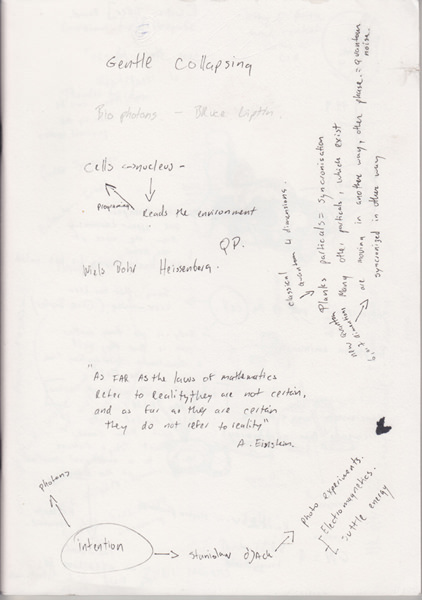 Gentle Collapsing
Biophotons – Bruce Lipton.
Cells nucleus –
Programes
Reads the environment
QP.
Niels Bohr Heissenberg.
classical
quantum 4 dimensions.
Planks particals = Syncronisation
Many other particals, which exist
are moving in another way, other phase. = quantum
noise.
syncronised in other way
New quantum
dimension
"As FAR As the laws of mathematics
Refer to Reality, they are not certain,
and as far as they are certain
they do not refer to reality"
A. Einstein.
photons
intention
stanislav
Photo experiments.
Electromagnetics.
suttle energy